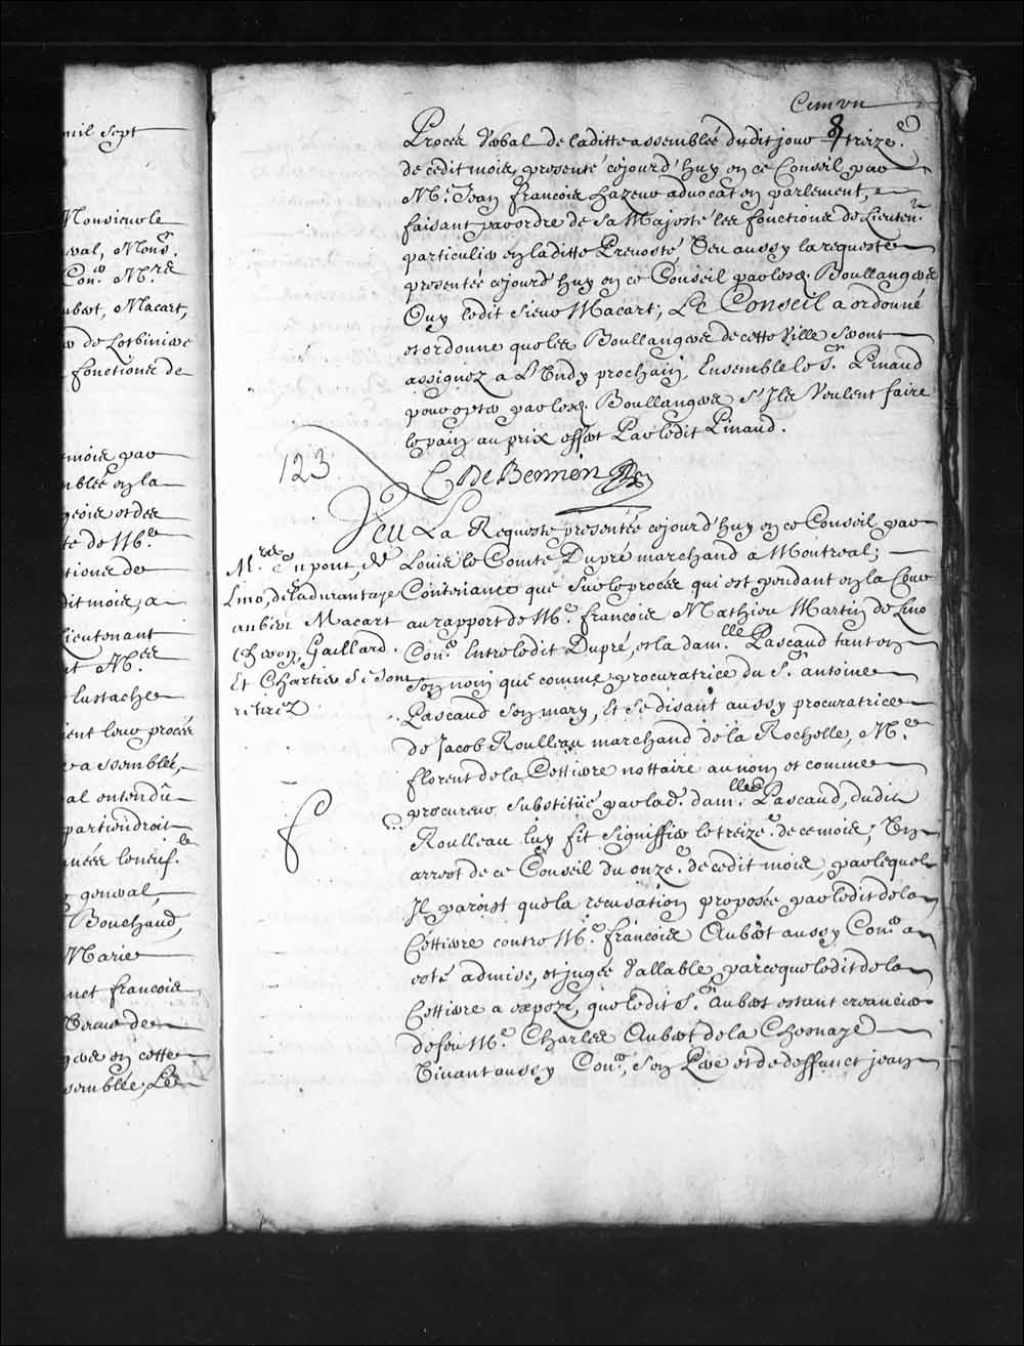 mil sept
Monsieur le
eval, Mons.r
Con.er M.rs
ubert, Macart,
er de Lotbiniere
fonctions de
mois par
mblée en la
geois et des
te de M.e
tions de
dit mois, a
Lieutenant
et M.rs
Eustache
ient leur procès
er assemblée,
al entendû
partiendroit
nuées le neuf.e
general,
Bouchaud,
Marie
nct francois
Veuve de
gers en cette
semblée, Le
Cent un
Procès Verbal de laditte assemblée dudit jour treize.e
de cedit mois, presenté cejourd'huy en ce Conseil par
M.e Jean francois hazeur advocat en parlement,
faisant par ordre de sa Majesté les fonctions de Lieuten.nt
particulier en laditte Prevosté, Veu aussy la requeste
presentée cejourd'huy en ce Conseil par lesd. Boullangers
Ouy ledit sieur Macart; Le Conseil a ordonné
et ordonne que les Boullangers de cette Ville seront
assignez a L'Undy prochain, Ensemble le S.r Pinaud
pour opter par lesd. Boullangers s'Ils Veulent faire
le pain au prix offert Par ledit Pinaud.
123
C De Bermen
Veu La Requeste presentée cejourd'huy en ce Conseil par
M.rs Dupont, de Louis le Comte Dupré marchand a Montreal;
Lino, deladurantaye Contenance que sur le procès qui est pendant en la Cour
aubert Macart au rapport de M.e francois Mathieu Martin de Lino
Cheron, Gaillard. Con.er Entre ledit Dupré, et la dam.lle Pascaud tant en
Et Chartier Se sont son nom que comme procuratrice du S.r antoine
retirez Pascaud son mary, Et se disant aussy procuratrice
de Jacob Roulleau marchand de la Rochelle, M.e
florent de la Cettiere nottaire au nom et comme
procureur substitüé par lad. dam.lle Pascaud, dudit
Roulleau luy fit signiffier le treize.e de ce mois, Un
arrest de ce Conseil du onze.e de cedit mois, par lequel
Il paroist que la recusation proposée par ledit de la
Cettiere contre M.e francois Aubert aussy Con.er a
esté admise, et jugée Vallable parce que ledit de la
Cettiere a exposé, que ledit S.r aubert estant creancier
de feu M.e Charles Aubert de la Chesnaye
Vivant aussy Con.er, son Pere et de deffunct jean